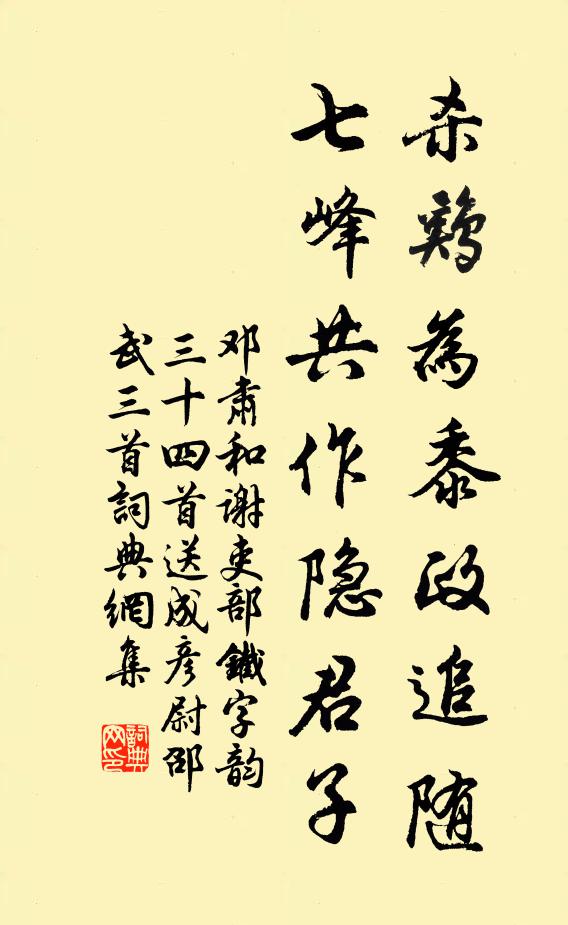 杀鷄為黍政追随
七峰共作隐君子
邓肃和谢吏部鐵字韵
三十四首送成彦尉邵
武三首詞典網集
詞典
网印